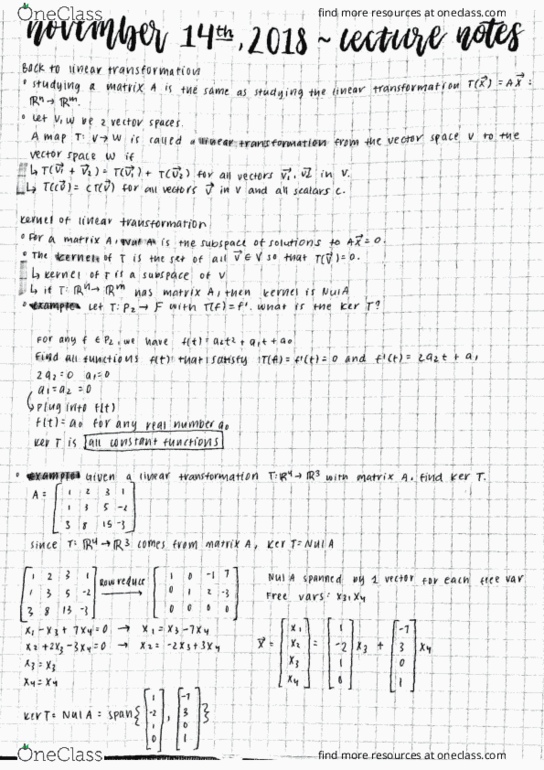 OneClass find more resources at oneclass.com
november 14th, 2018 ~ lecture notes
Back to linear transformation
• studying a matrix A is the same as studying the linear transformation T(x⃗) = Ax⃗ :
ℝⁿ → ℝᵐ.
• Let V, W be 2 vector spaces.
A map T: V → W is called a linear transformation from the vector space V to the
vector space W if
↳ T(v⃗₁ + v⃗₂) = T(v⃗₁) + T(v⃗₂) for all vectors v⃗₁, v⃗₂ in V.
↳ T(cv⃗) = cT(v⃗) for all vectors v⃗ in V and all scalars c.
Kernel of linear transformation
• For a matrix A, Nul A is the subspace of solutions to Ax⃗ = 0.
• The kernel of T is the set of all v⃗ ∈ V so that T(v⃗) = 0.
↳ kernel of T is a subspace of V
↳ if T: ℝⁿ → ℝᵐ has matrix A, then kernel is Nul A
• example Let T: P₂ → F with T(f) = f'. What is the ker T?
For any f ∈ P₂, we have f(t) = a₂t² + a₁t + a₀
Find all functions f(t) that satisfy T(f) = f'(t) = 0 and f'(t) = 2a₂t + a₁
2a₂ = 0 a₁ = 0
a₁ = a₂ = 0
↳ plug into f(t)
f(t) = a₀ for any real number a₀
ker T is all constant functions
• example Given a linear transformation T: ℝ⁴ → ℝ³ with matrix A, find ker T.
A = [ 1 2 3 1
1 3 5 -2
3 8 13 -3 ]
since T: ℝ⁴ → ℝ³ comes from matrix A, ker T = Nul A
[ 1 2 3 1 row reduce [ 1 0 -1 7 Nul A spanned by 1 vector for each free var
1 3 5 -2 → 0 1 2 -3 Free vars: x₃, x₄
3 8 13 -3 ] 0 0 0 0 ]
x₁ - x₃ + 7x₄ = 0 → x₁ = x₃ - 7x₄
x₂ + 2x₃ - 3x₄ = 0 → x₂ = -2x₃ + 3x₄
x₃ = x₃
x₄ = x₄
x⃗ = [ x₁ x₂ x₃ x₄ ] = [ 1 -2 1 0 ] x₃ + [ -7 3 0 1 ] x₄
ker T = Nul A = span { [ 1 -2 1 0 ] , [ -7 3 0 1 ] }
OneClass find more resources at oneclass.com